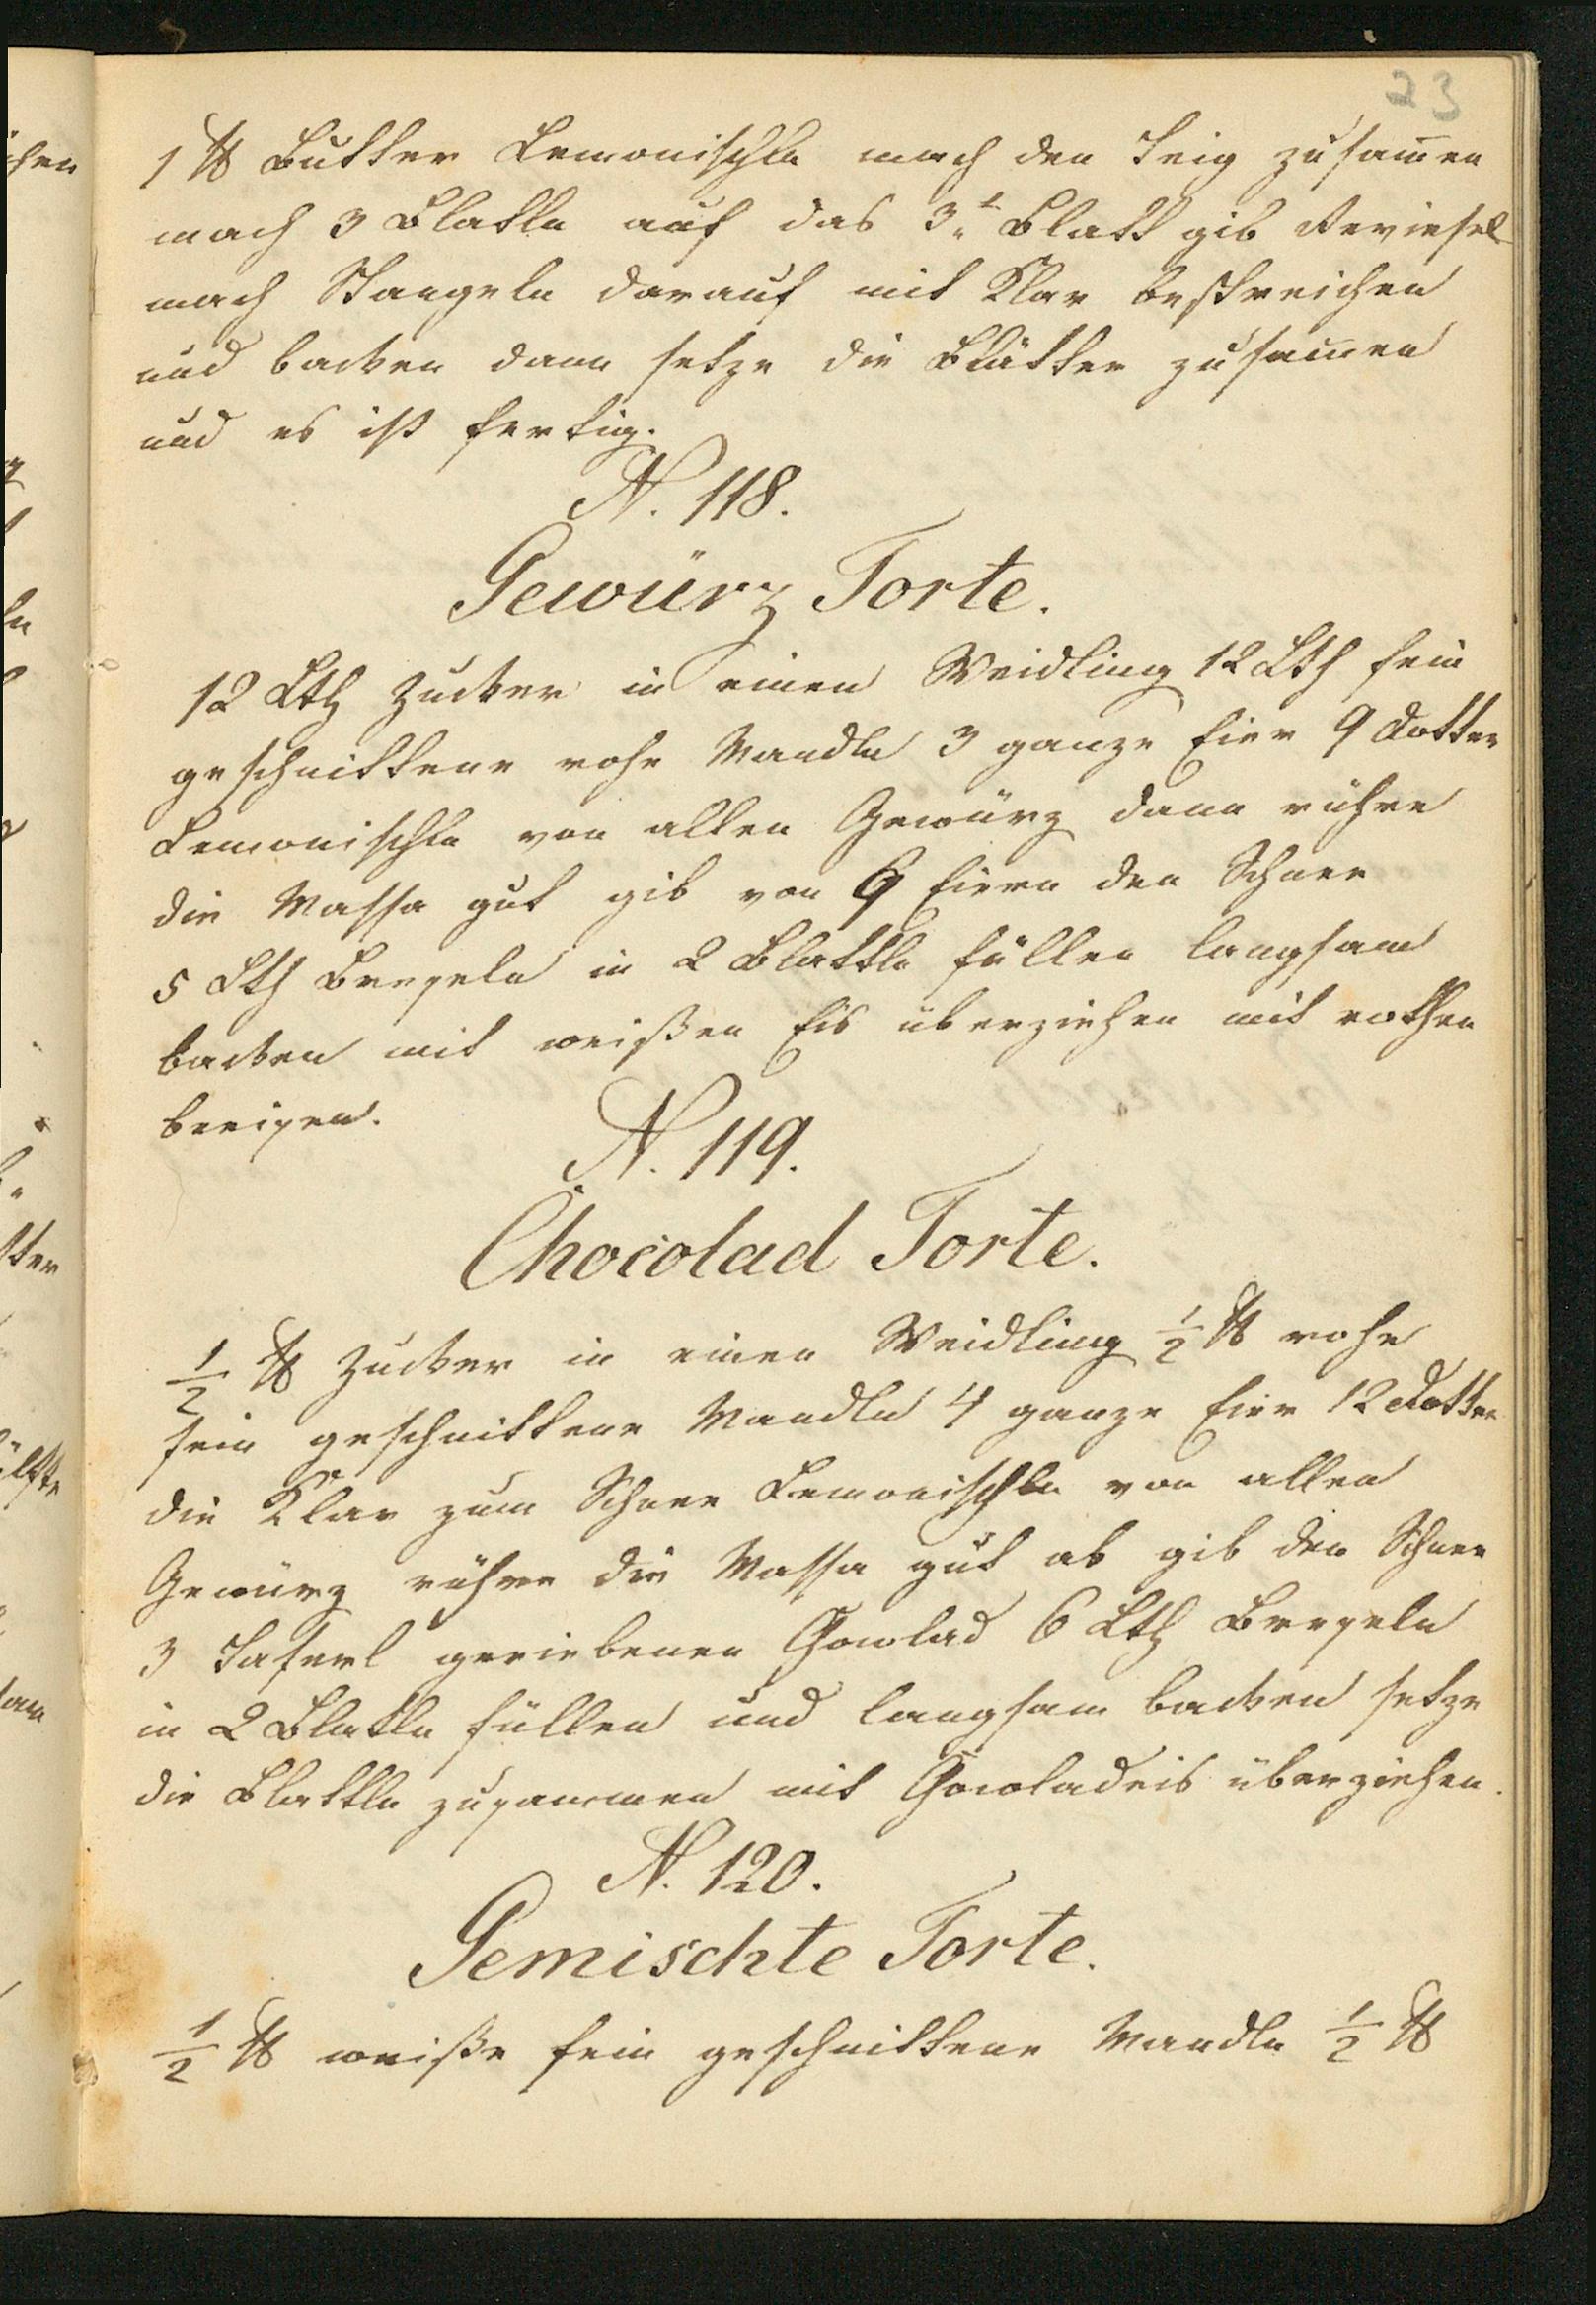 23
1 ℔ Butter Lemonischln mach den Teig zusam̅en
mach 3 Blatln auf das 3t. Blatt gib Reviesel
mach Stangeln darauf mit Klar bestreichen
und backen dann setze die Blätter zusam̅en
und es ist fertig.
N. 118.
Gewürz Torte.
12 Lth Zucker in einen Weidling 12 Lth fein
geschnittene rohe Mandln 3 ganze Eier 9 Dotter
Lemonischln von allen Gewürz dann rühre
die Massa gut gib von 9 Eiern den Schnee
5 Lth Breseln in 2 Blattln füllen langsam
backen mit weißen Eis überziehen mit rothen
bereisen.
N. 119.
Chocolad Torte.
½ ℔ Zucker in einen Weidling ½ ℔ rohe
fein geschnittene Mandln 4 ganze Eier 12 Dotter
die Klar zum Schnee Lemonischln von allen
Gewürz rühre die Massa gut ab gib den Schnee
3 Taferl geriebenen Chocolad 6 Lth Breseln
in 2 Blatln füllen und langsam backen setze
die Blattln zusammen mit Chocoladeis überziehen.
N. 120.
Gemischte Torte.
½ ℔ weiße fein geschnittene Mandln ½ ℔